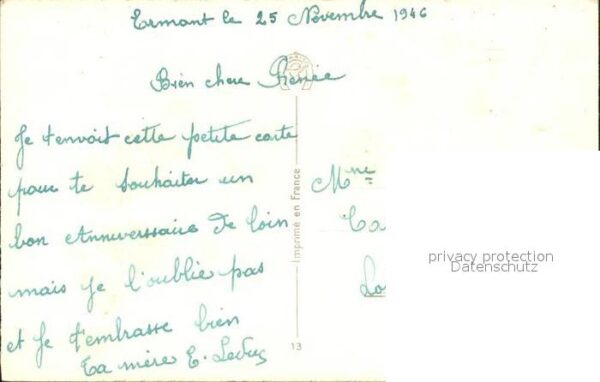 Ermont le 25 Novembre 1946
Bien chere Renée
Je t'envoit cette petite carte
pour te souhaiter un
bon Anniverssaire de loin
mais je l'oublie pas
et je t'embrasse bien
ta mère E.
Mme
Ca
Lo
Imprimé en France
13
privacy protection
Datenschutz